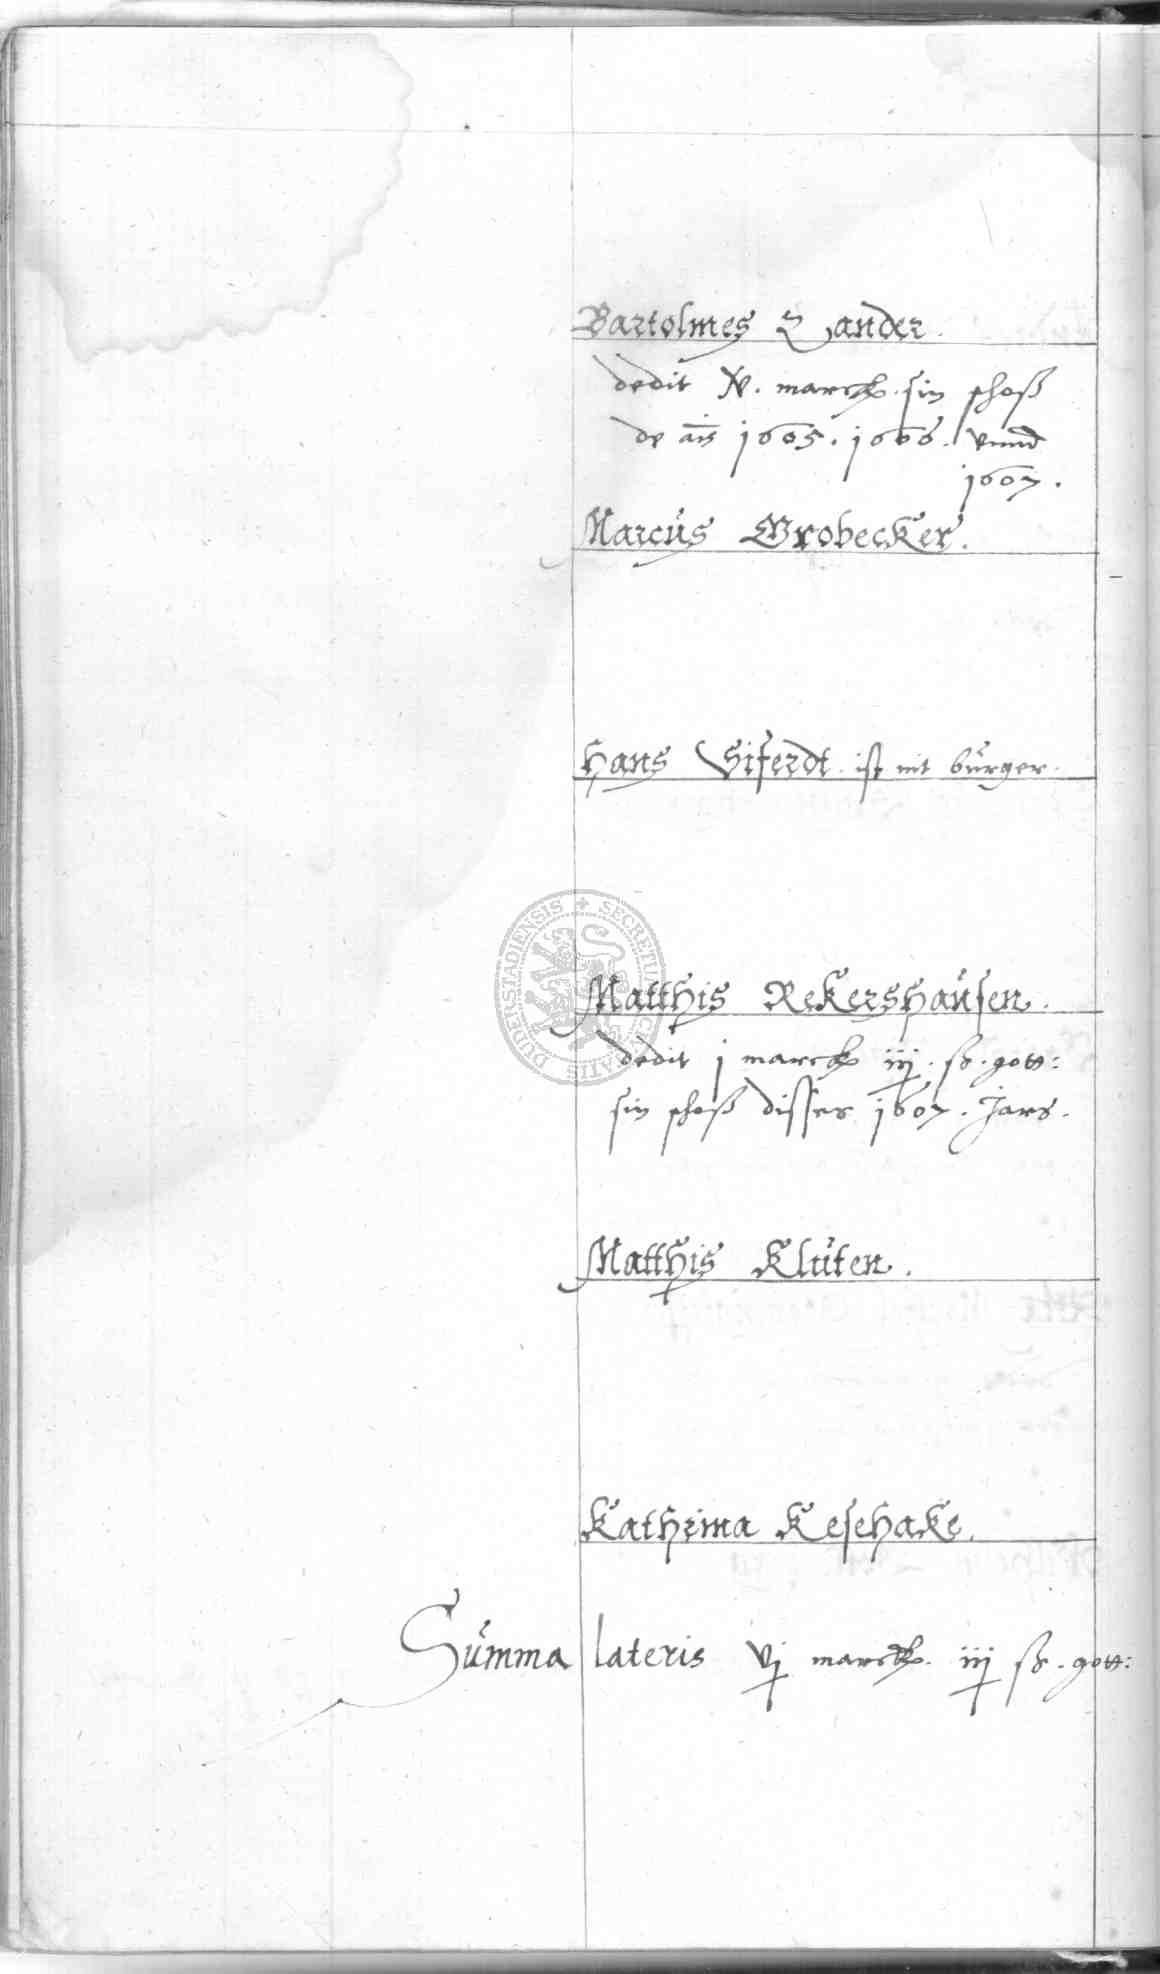 Bartolmes Zander.
dedit v. marck. sin schoß
de ais 1605. 1606. vnnd
1607.
Marcus Grobecker.
Hans Siferdt. ist nit bürger.
Matthis Rekershausen.
dedit j marck iij. ß. gott:
sin schoß disses 1607. Jars.
Matthis Kluten.
Kathrina Kesehake.
Summa lateris vj marck. iij ß. gott:
SECRETUM CIVITATIS DUDERSTADIENSIS